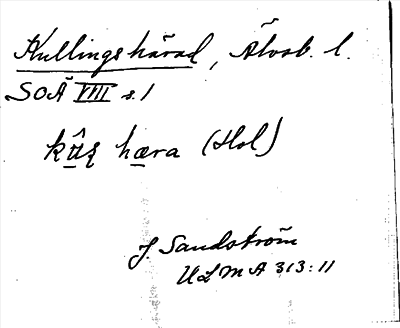 Kullings härad, Älvsb. l.
SOÄ VIII s. 1
hæra (Hol)
J. Sandström
ULMA 313:11